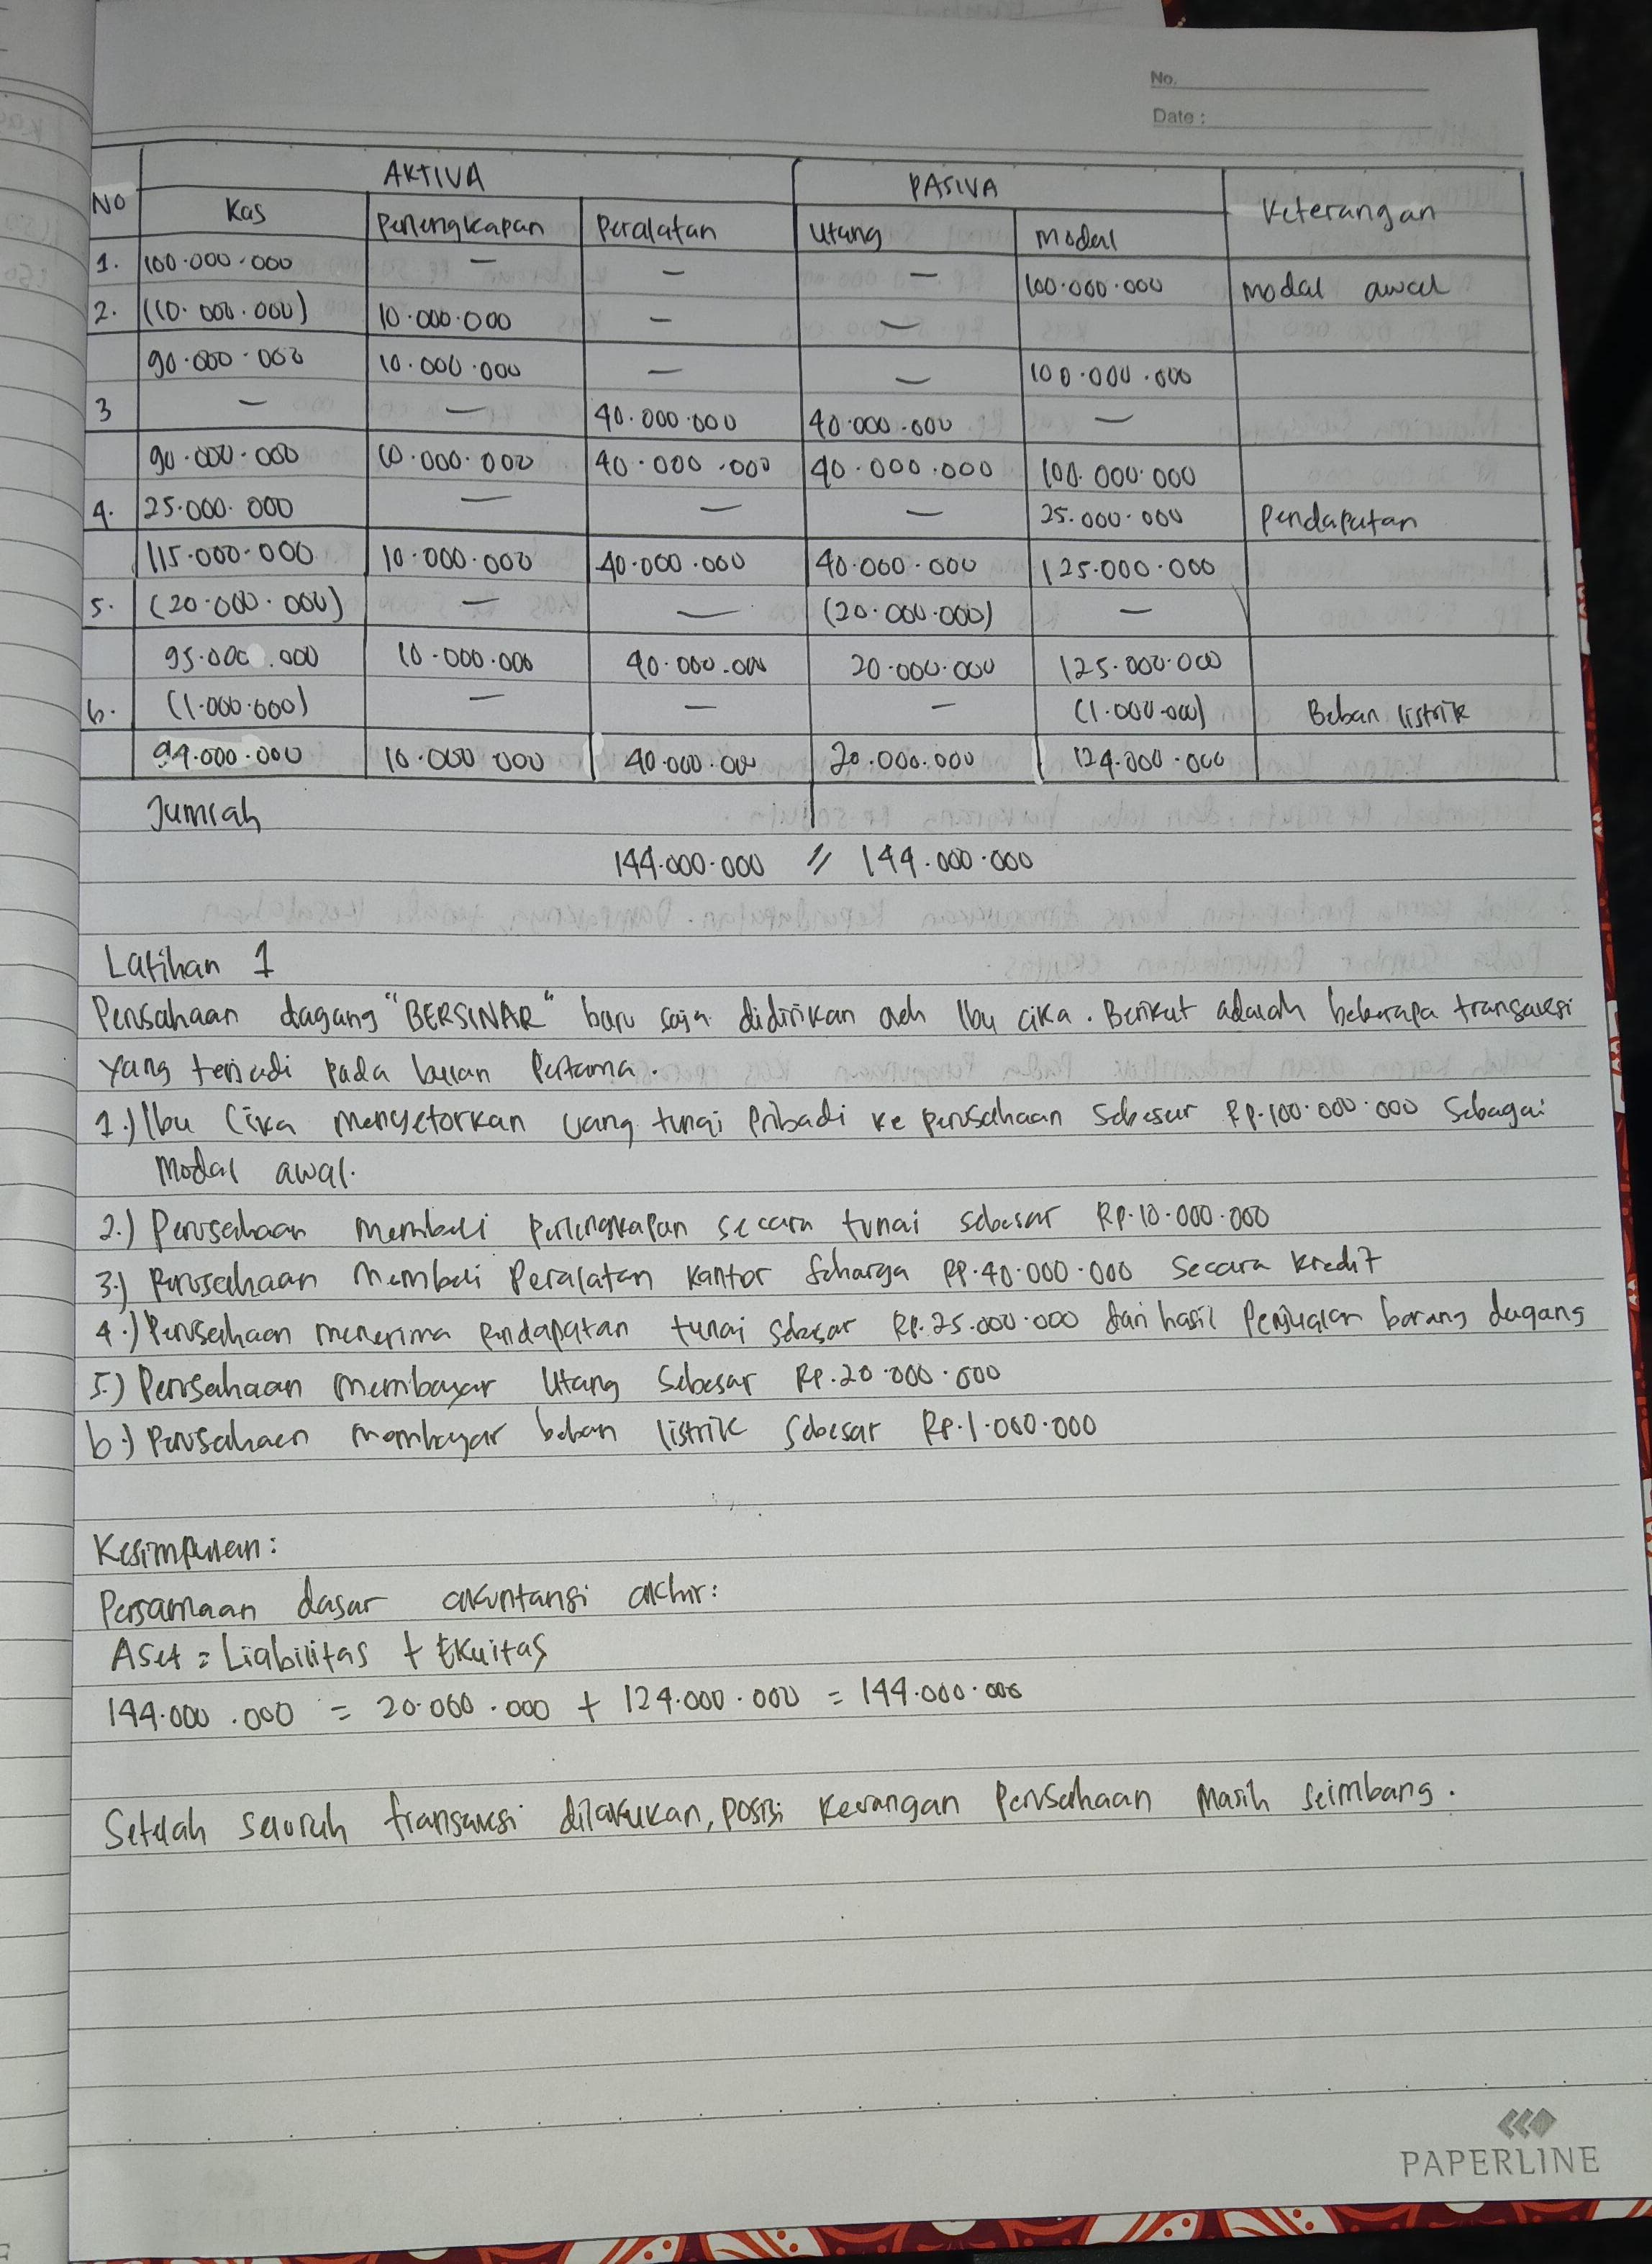 No.
Date :
NO AKTIVA PASIVA Keterangan
Kas Perlengkapan Peralatan Utang Modal
1. 100.000.000 — — — 100.000.000 Modal awal
2. (10.000.000) 10.000.000 — —
90.000.000 10.000.000 — — 100.000.000
3 — — 40.000.000 40.000.000 —
90.000.000 10.000.000 40.000.000 40.000.000 100.000.000
4. 25.000.000 — — — 25.000.000 Pendapatan
115.000.000 10.000.000 40.000.000 40.000.000 125.000.000
5. (20.000.000) — — (20.000.000) —
95.000.000 10.000.000 40.000.000 20.000.000 125.000.000
6. (1.000.000) — — — (1.000.000) Beban listrik
94.000.000 10.000.000 40.000.000 20.000.000 124.000.000
Jumlah
144.000.000 // 144.000.000
Latihan 1
Perusahaan dagang "BERSINAR" baru saja didirikan oleh Ibu Cika. Berikut adalah beberapa transaksi
yang terjadi pada bulan Pertama.
1.) Ibu Cika menyetorkan uang tunai Pribadi ke perusahaan sebesar Rp.100.000.000 sebagai
Modal awal.
2.) Perusahaan membeli perlengkapan secara tunai sebesar Rp.10.000.000
3.) Perusahaan membeli Peralatan kantor seharga Rp.40.000.000 secara kredit
4.) Perusahaan menerima pendapatan tunai sebesar Rp.25.000.000 dari hasil Penjualan barang dagang
5.) Perusahaan membayar utang sebesar Rp.20.000.000
6.) Perusahaan membayar beban listrik sebesar Rp.1.000.000
Kesimpulan:
Persamaan dasar akuntansi akhir:
Aset = Liabilitas + Ekuitas
144.000.000 = 20.000.000 + 124.000.000 = 144.000.000
Setelah seluruh transaksi dilakukan, posisi keuangan Perusahaan Masih seimbang.
PAPERLINE